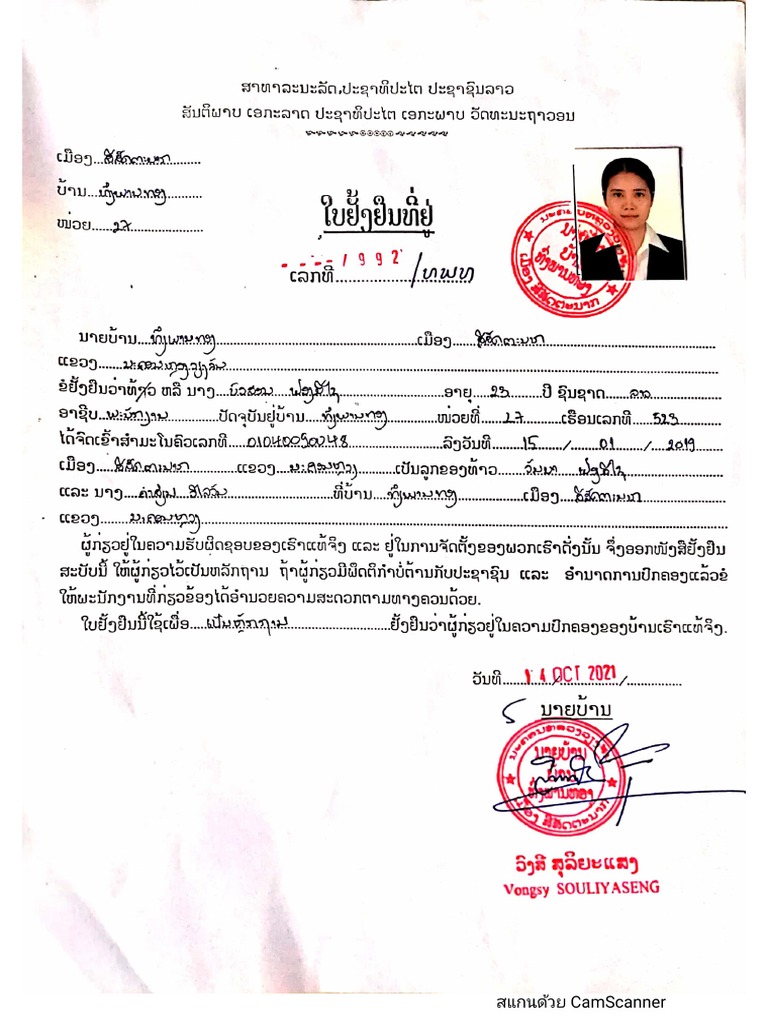 ສາທາລະນະລັດ,ປະຊາທິປະໄຕ ປະຊາຊົນລາວ
ສັນຕິພາບ ເອກະລາດ ປະຊາທິປະໄຕ ເອກະພາບ ວັດທະນະຖາວອນ
ເມືອງ...ສີສັດຕະນາກ
ບ້ານ...ທົ່ງພານທອງ
ໜ່ວຍ...27
ໃບຢັ້ງຢືນທີ່ຢູ່
ເລກທີ 1992 /ທພທ
ນະຄອນຫລວງວຽງຈັນ
ນາຍບ້ານ
ບ້ານ
ທົ່ງພານທອງ
ເມືອງ ສີສັດຕະນາກ
ນາຍບ້ານ ທົ່ງພານທອງ ເມືອງ ສີສັດຕະນາກ
ແຂວງ ນະຄອນຫຼວງວຽງຈັນ
ຂໍຢັ້ງຢືນວ່າທ້າວ ຫລື ນາງ ບົວສອນ ອາຍຸ 23 ປີ ຊົນຊາດ ລາວ
ອາຊີບ ພະນັກງານ ປັດຈຸບັນຢູ່ບ້ານ ທົ່ງພານທອງ ໜ່ວຍທີ່ 27 ເຮືອນເລກທີ 523
ໄດ້ຈົດເຂົ້າສຳມະໂນຄົວເລກທີ 01040090248 ລົງວັນທີ 15 / 01 / 2019
ເມືອງ ສີສັດຕະນາກ ແຂວງ ນະຄອນຫຼວງ ເປັນລູກຂອງທ້າວ
ແລະ ນາງ ທີ່ບ້ານ ທົ່ງພານທອງ ເມືອງ ສີສັດຕະນາກ
ແຂວງ ນະຄອນຫຼວງ
ຜູ້ກ່ຽວຢູ່ໃນຄວາມຮັບຜິດຊອບຂອງເຮົາແທ້ຈິງ ແລະ ຢູ່ໃນການຈັດຕັ້ງຂອງພວກເຮົາດັ່ງນັ້ນ ຈຶ່ງອອກໜັງສືຢັ້ງຢືນ
ສະບັບນີ້ ໃຫ້ຜູ້ກ່ຽວໄວ້ເປັນຫລັກຖານ ຖ້າຜູ້ກ່ຽວມີພຶດຕິກຳບໍ່ຕ້ານກັບປະຊາຊົນ ແລະ ອຳນາດການປົກຄອງແລ້ວຂໍ
ໃຫ້ພະນັກງານທີ່ກ່ຽວຂ້ອງໄດ້ອຳນວຍຄວາມສະດວກຕາມທາງຄວນດ້ວຍ.
ໃບຢັ້ງຢືນນີ້ໃຊ້ເພື່ອ ເປັນຫຼັກຖານ ຢັ້ງຢືນວ່າຜູ້ກ່ຽວຢູ່ໃນຄວາມປົກຄອງຂອງບ້ານເຮົາແທ້ຈິງ.
ວັນທີ 14 OCT 2021
ນາຍບ້ານ
ນະຄອນຫລວງວຽງຈັນ
ນາຍບ້ານ
ບ້ານ
ທົ່ງພານທອງ
ເມືອງ ສີສັດຕະນາກ
ວົງສີ ສຸລິຍະແສງ
Vongsy SOULIYASENG
ສແກນດ້ວຍ CamScanner